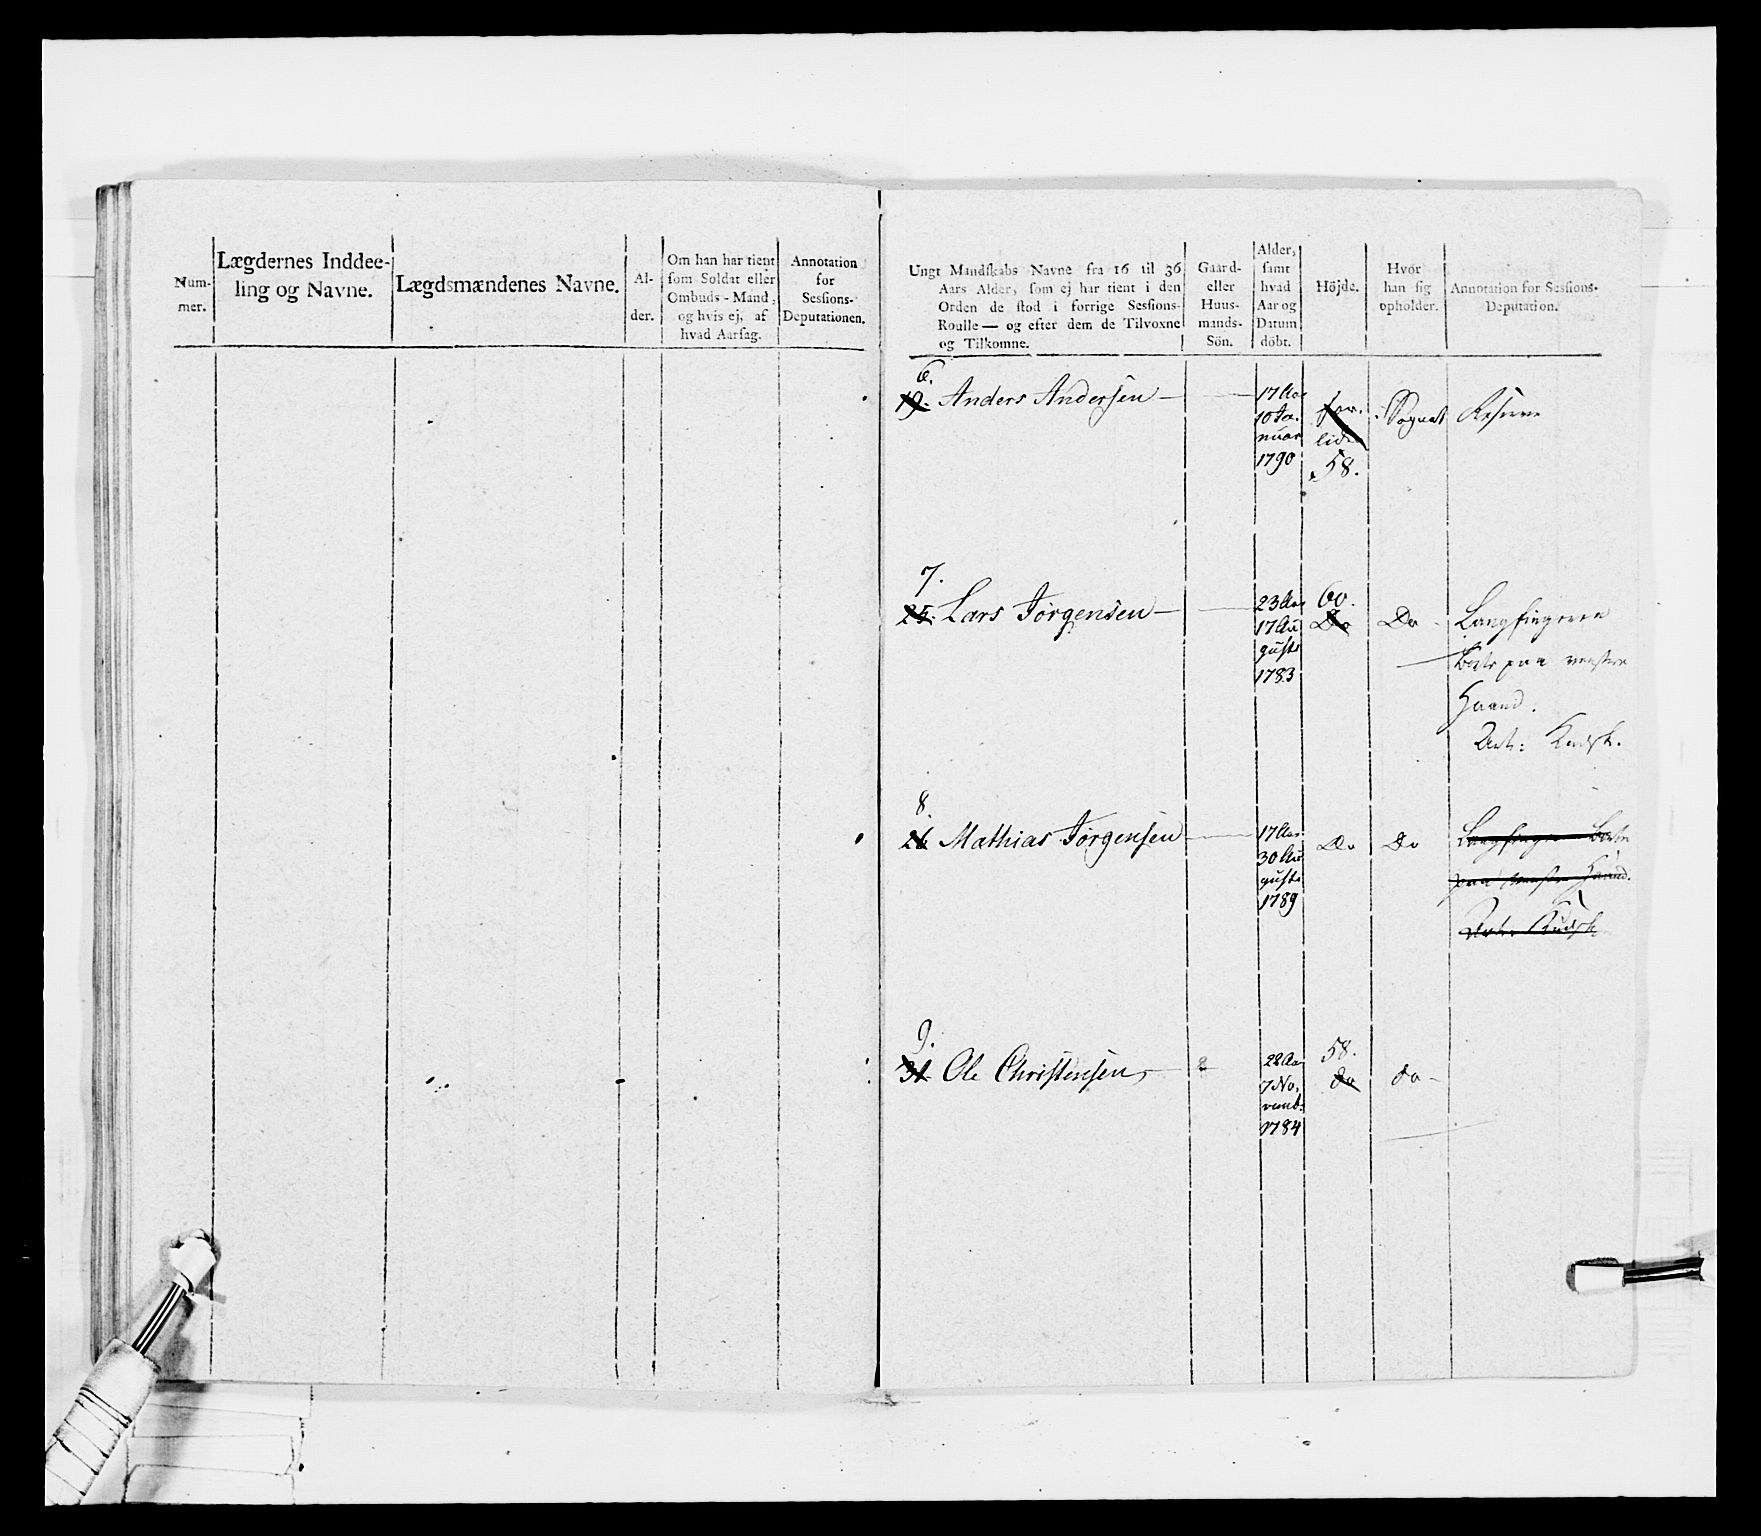 Num-
mer.
Lægdernes Inddee-
ling og Navne.
Lægdsmændenes Navne.
Al-
der.
Om han har tient
som Soldat eller
Ombuds-Mand,
og hvis ej, af
hvad Aarsag.
Annotation
for
Sessions-
Deputationen.
Ungt Mandskabs Navne fra 16 til 36
Aars Alder, som ej har tient i den
Orden de stod i forrige Sessions-
Roulle — og efter dem de Tilvoxne
og Tilkomne.
Gaard-
eller
Huus-
mands-
Sön.
Alder,
samt
hvad
Aar og
Datum
döbt.
Höjde.
Hvor
han sig
opholder.
Annotation for Sessions-
Deputation.
6.
19. Anders Andersen —
17 Aar
10 Ja-
nuar
1790
liden
58.
Sognet
Reserve
7.
25. Lars Jørgensen —
23 Aar
17 Au
gusti
1783
60.
Do
Do
Langfingeren
borte paa venstre
Haand.
Art: Kudsk.
8.
26 Mathias Jørgensen
17 Aar
30 Au
gusti
1789
Do
Do
Langfinger borte
paa venstre Haand.
Art: Kudsk
9.
31. Ole Christensen,
22 Aar
7 No.
vemb.
1784
58.
do
do